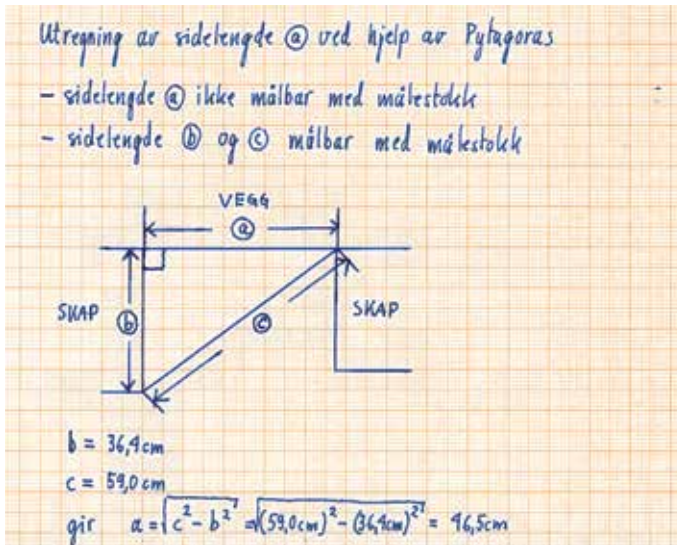 Utregning av sidelengde ⓐ ved hjelp av Pytagoras
– sidelengde ⓐ ikke målbar med målestokk
– sidelengde ⓑ og ⓒ målbar med målestokk
VEGG
ⓐ
SKAP ⓑ ⓒ SKAP
b = 36,4 cm
c = 59,0 cm
gir a = √(c² – b²) = √((59,0cm)² – (36,4cm)²) = 46,5cm